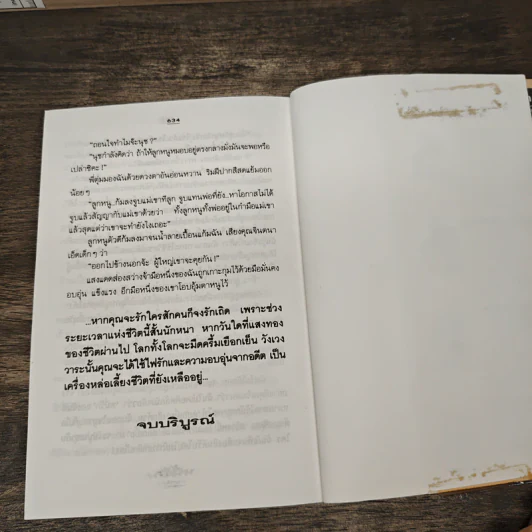 634
"ถอนใจทำไมจ๊ะนุช ?"
"นุชกำลังคิดว่า ถ้าให้ลูกหนูหมอบอยู่ตรงกลางมั่งมันจะพอหรือ
เปล่าซิคะ !"
พี่ตุ่มมองฉันด้วยดวงตาอันอ่อนหวาน ริมฝีปากสีสดแย้มออก
น้อยๆ
"ลูกหนู..ก้มลงจูบแม่เขาทีลูก จูบแทนพ่อที่ยัง..หาโอกาสไม่ได้
จูบแล้วสัญญากับแม่เขาด้วยว่า ทั้งลูกหนูทั้งพ่ออยู่ในกำมือแม่เขา
แล้วสุดแต่ว่าเขาจะทำยังไงเถอะ"
ลูกหนูตัวดีก้มลงมาจนน้ำลายเปื้อนแก้มฉัน เสียงคุณจินตนา
เอ็ดเด็กๆ ว่า
"ออกไปข้างนอกจ้ะ ผู้ใหญ่เขาจะคุยกัน !"
แสงแดดส่องสว่างจ้ามือหนึ่งของฉันถูกเกาะกุมไว้ด้วยมือมั่นคง
อบอุ่น แข็งแรง อีกมือหนึ่งของเขาโอบอุ้มตาหนูไว้
...หากคุณจะรักใครสักคนก็จงรักเถิด เพราะช่วง
ระยะเวลาแห่งชีวิตนี้สั้นนักหนา หากวันใดที่แสงทอง
ของชีวิตผ่านไป โลกทั้งโลกจะมืดครึ้มเยือกเย็น วังเวง
วาระนั้นคุณจะได้ใช้ไฟรักและความอบอุ่นจากอดีต เป็น
เครื่องหล่อเลี้ยงชีวิตที่ยังเหลืออยู่...
จบบริบูรณ์